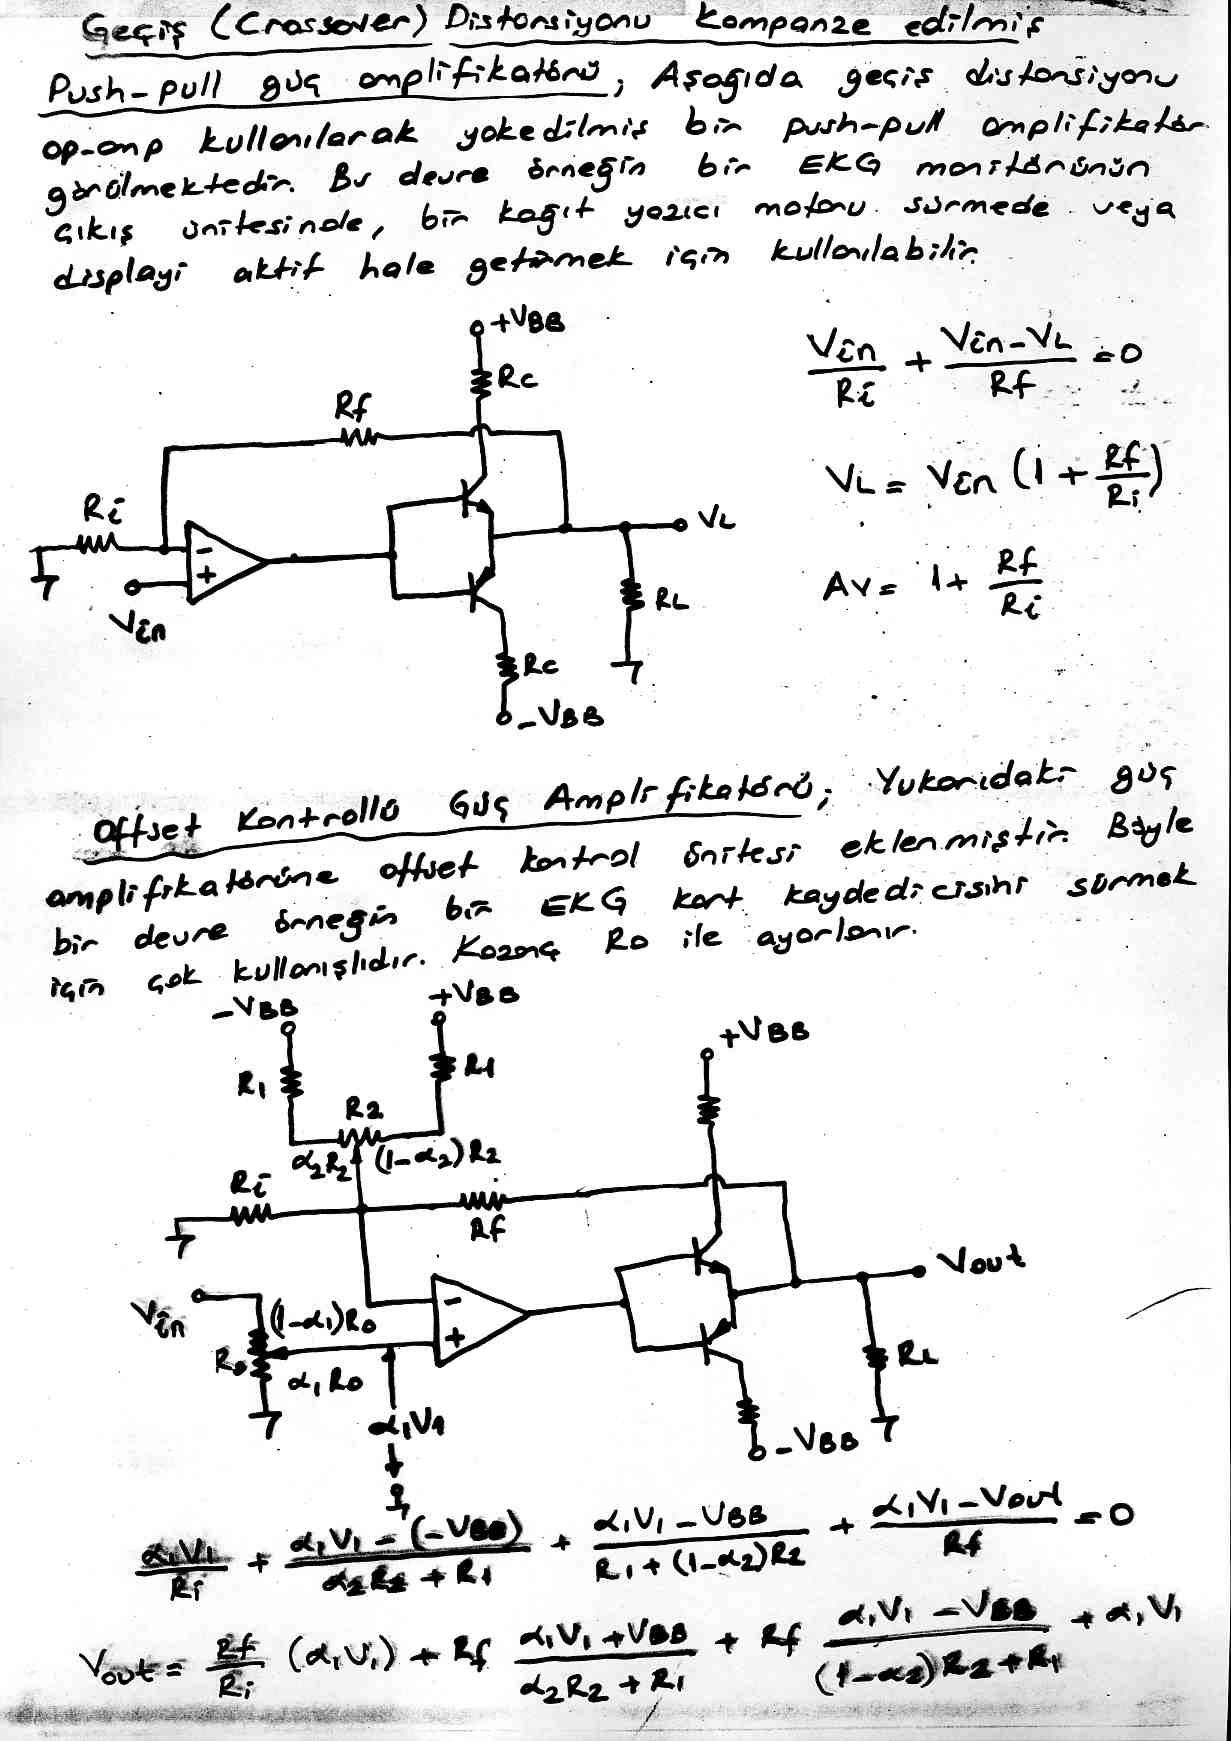 Geçiş (Crossover) Distorsiyonu kompanze edilmiş
Push-pull güç amplifikatörü; Aşağıda geçiş distorsiyonu
op-amp kullanılarak yokedilmiş bir push-pull amplifikatör
görülmektedir. Bu devre örneğin bir EKG monitörünün
çıkış ünitesinde, bir kağıt yazıcı motoru sürmede veya
displayi aktif hale getirmek için kullanılabilir.
+VBB
Rc
Rf
Ri
-
+
Vin
VL
RL
Rc
-VBB
Vin/Ri + (Vin-VL)/Rf = 0
VL = Vin (1 + Rf/Ri)
Av = 1 + Rf/Ri
Offset Kontrollü Güç Amplifikatörü; Yukarıdaki güç
amplifikatörüne offset kontrol ünitesi eklenmiştir. Böyle
bir devre örneğin bir EKG kart kaydedicisini sürmek
için çok kullanışlıdır. Kazanç Ro ile ayarlanır.
-VBB
+VBB
R1
R1
R2
α2R2
(1-α2)R2
Ri
Rf
+VBB
Vin
(1-α1)Ro
Ro
α1Ro
-
+
α1V1
Vout
RL
-VBB
α1V1/Ri + (α1V1-(-VBB))/(α2R2+R1) + (α1V1-VBB)/(R1+(1-α2)R2) + (α1V1-Vout)/Rf = 0
Vout = Rf/Ri (α1V1) + Rf (α1V1+VBB)/(α2R2+R1) + Rf (α1V1-VBB)/((1-α2)R2+R1) + α1V1